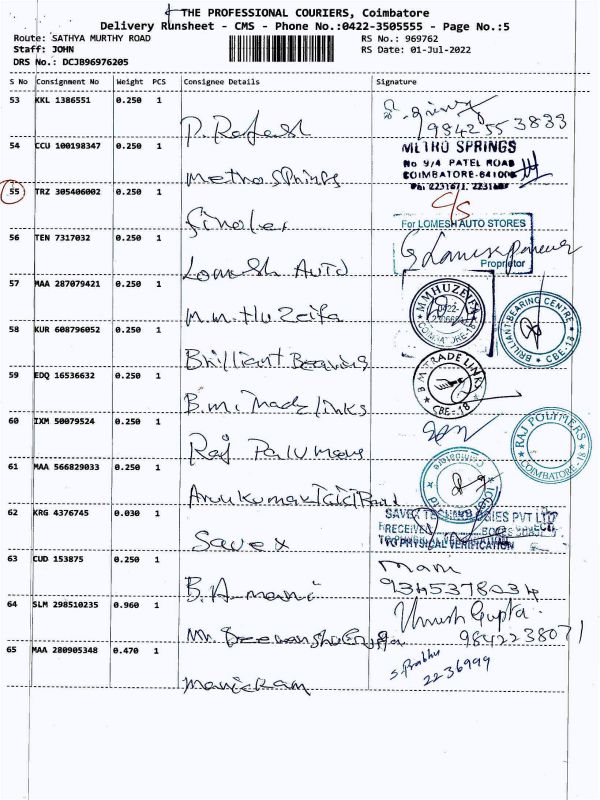 THE PROFESSIONAL COURIERS, Coimbatore
Delivery Runsheet - CMS - Phone No.:0422-3505555 - Page No.:5
Route: SATHYA MURTHY ROAD RS No.: 969762
Staff: JOHN RS Date: 01-Jul-2022
DRS No.: DCJB96976205
S No Consignment No Weight PCS Consignee Details Signature
53 KKL 1386551 0.250 1
P. Rajesh 98425 53833
54 CCU 100198347 0.250 1 METRO SPRINGS
No 9/4 PATEL ROAD
COIMBATORE-641009
Metro Springs Ph: 2231671,
55 TRZ 305406002 0.250 1 C/S
For LOMESH AUTO STORES
56 TEN 7317032 0.250 1
Proprietor
Lomesh Auto
57 MAA 287079421 0.250 1
M.M. Huzeifa
58 KUR 608796052 0.250 1 BRILLIANT BEARING CENTRE CBE-18
Brilliant Bearings
59 EDQ 16536632 0.250 1 B.M TRADE LINKS CBE-18
B.M. Trade links
60 IXM 50079524 0.250 1 RAJ POLYMERS COIMBATORE-18
Raj
61 MAA 566829033 0.250 1 Coimbatore
Arunkumar ICICI Bank
62 KRG 4376745 0.030 1 SAVEX TECHNOLOGIES PVT LTD
RECEIVED
TO PHYSICAL VERIFICATION
Savex
63 CUD 153875 0.250 1 Mani
B. A. mani 9345378034
64 SLM 298510235 0.960 1 Umesh Gupta.
Mr. Deevanshu Gupta 9842238071
65 MAA 280905348 0.470 1 S. Prabhu
2236999
Manickam